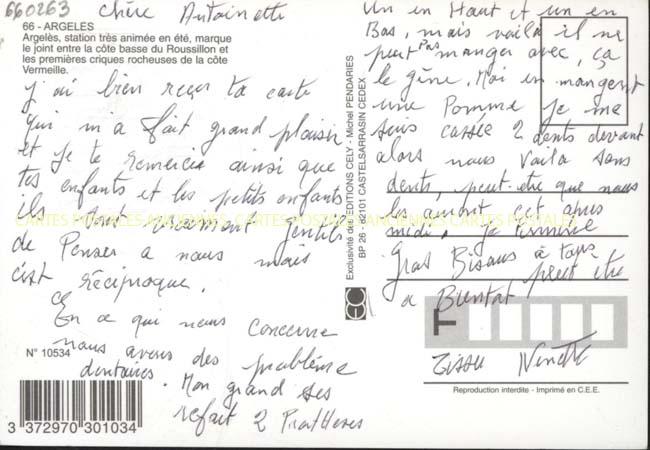 660263
chère Antoinette
66 - ARGELES
Argelès, station très animée en été, marque
le joint entre la côte basse du Roussillon et
les premières criques rocheuses de la côte
Vermeille.
j'ai bien reçu ta carte
qui m'a fait grand plaisir
et je te remercie ainsi que
tes enfants et les petits enfants
ils sont vraiment gentils
de Penser a nous mais
c'est réciproque.
En ce qui nous concerne
nous avons des problème
dentaires. Mon grand ses
refait 2
N° 10534
3 372970 301034
Exclusivité des EDITIONS CELY - Michel PENDARIES
BP 26 - 82101 CASTELSARRASIN CEDEX
Un en Haut et un en
Bas, mais voila il ne
peut pas manger avec, ça
le gêne. Moi en mangent
une Pomme je me
suis cassée 2 dents devant
alors nous voila sans
dents, peut-etre que nous
cet apres
midi. Je termine
Gros Bisous à tous
peut etre
a Bientot
Ninette
T
Reproduction interdite - Imprimé en C.E.E.
CARTES POSTALES ANCIENNES CARTES POSTALES ANCIENNES CARTES POSTALES